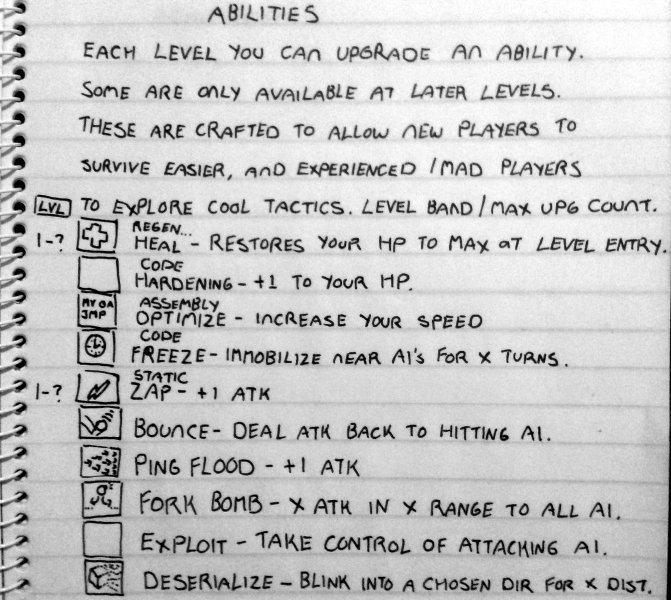 ABILITIES
EACH LEVEL YOU CAN UPGRADE AN ABILITY.
SOME ARE ONLY AVAILABLE AT LATER LEVELS.
THESE ARE CRAFTED TO ALLOW NEW PLAYERS TO
SURVIVE EASIER, AND EXPERIENCED / MAD PLAYERS
LVL TO EXPLORE COOL TACTICS. LEVEL BAND / MAX UPG COUNT.
REGEN...
1-? HEAL - RESTORES YOUR HP TO MAX AT LEVEL ENTRY.
CODE
HARDENING - +1 TO YOUR HP.
ASSEMBLY
JMP OPTIMIZE - INCREASE YOUR SPEED
CODE
FREEZE - IMMOBILIZE NEAR AI'S FOR X TURNS.
STATIC
1-? ZAP - +1 ATK
BOUNCE - DEAL ATK BACK TO HITTING AI.
PING FLOOD - +1 ATK
FORK BOMB - X ATK IN X RANGE TO ALL AI.
EXPLOIT - TAKE CONTROL OF ATTACKING AI.
DESERIALIZE - BLINK INTO A CHOSEN DIR FOR X DIST.